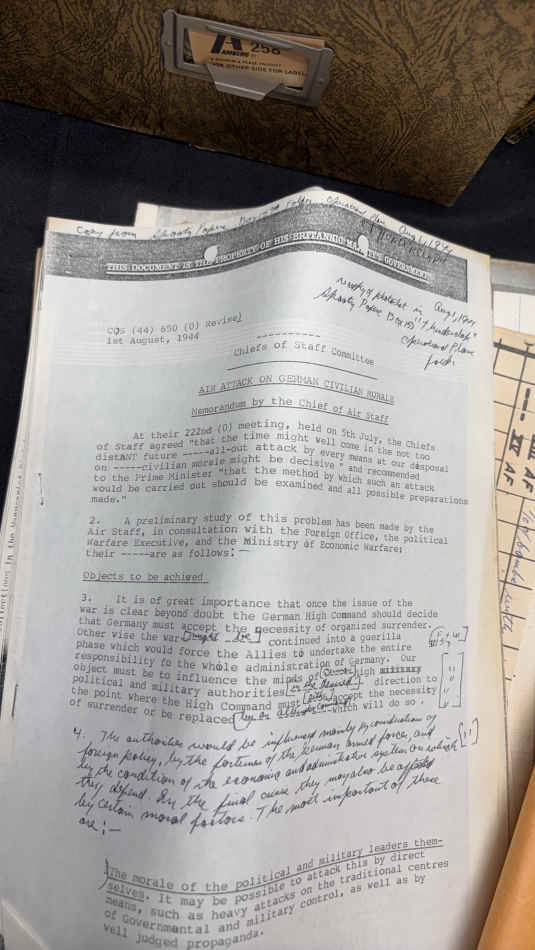 AMBERG
258
OTHER SIDE FOR LABEL
Copy from Spaatz Papers
THIS DOCUMENT IS THE PROPERTY OF HIS BRITANNIC MAJESTY'S GOVERNMENT
Aug 1, 1944
Spaatz Papers Box
COS (44) 650 (O) Revise)
1st August, 1944
Chiefs of Staff Committee
AIR ATTACK ON GERMAN CIVILIAN MORALE
Memorandum by the Chief of Air Staff
At their 222nd (O) meeting, held on 5th July, the Chiefs
of Staff agreed "that the time might well come in the not too
distANT future -----all-out attack by every means at our disposal
on -----civilian morale might be decisive " and recommended
to the Prime Minister "that the method by which such an attack
would be carried out should be examined and all possible preparations
made."
2. A preliminary study of this problem has been made by the
Air Staff, in consultation with the Foreign Office, the political
Warfare Executive, and the Ministry of Economic Warfare;
their -----are as follows: —
Objects to be achieved
3. It is of great importance that once the issue of the
war is clear beyond doubt the German High Command should decide
that Germany must accept the necessity of organized surrender.
Other wise the war might be continued into a guerilla
phase which would force the Allies to undertake the entire
responsibility fo the whole administration of Germany. Our
object must be to influence the minds of high military
political and military authorities direction to
the point where the High Command must accept the necessity
of surrender or be replaced which will do so .
4. The authorities would be influenced mainly by consideration of
foreign policy, by the fortunes of the German armed forces, and
by the condition of the economic and administrative system on which
they depend. In the final cause they may also be affected
by certain moral factors. The most important of these
are: —
The morale of the political and military leaders them-
selves. It may be possible to attack this by direct
means, such as heavy attacks on the traditional centres
of Governmental and military control, as well as by
well judged propaganda.
AF
AF